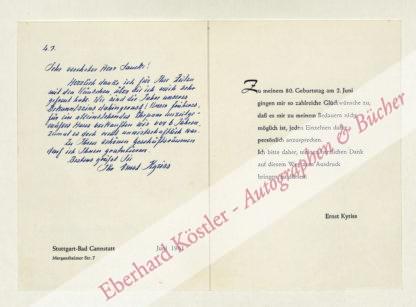 4.7.
Sehr verehrter Herr
Herzlich danke ich für Ihre Zeilen
mit den Wünschen über die ich mich sehr
gefreut habe. Wo sind die Jahre unseres
für ein alleinstehendes Ehepaar
Haus verkauften wir vor 6 Jahren,
es doch recht unwirtschaftlich war.
Zu Ihren schönen Geschäftsräumen
darf ich Ihnen gratulieren.
Bestens grüßt Sie
Ihr Ernst Kyriss
Stuttgart-Bad Cannstatt
Mergentheimer Str. 7
Juni 1961
Zu meinem 80. Geburtstag am 2. Juni
gingen mir so zahlreiche Glückwünsche zu,
daß es mir zu meinem Bedauern nicht
möglich ist, jedem Einzelnen dafür
persönlich zu danken.
Ich bitte daher, meinen herzlichen Dank
auf diesem Weg zum Ausdruck
bringen zu dürfen.
Ernst Kyriss
Eberhard Köstler - Autographen & Bücher